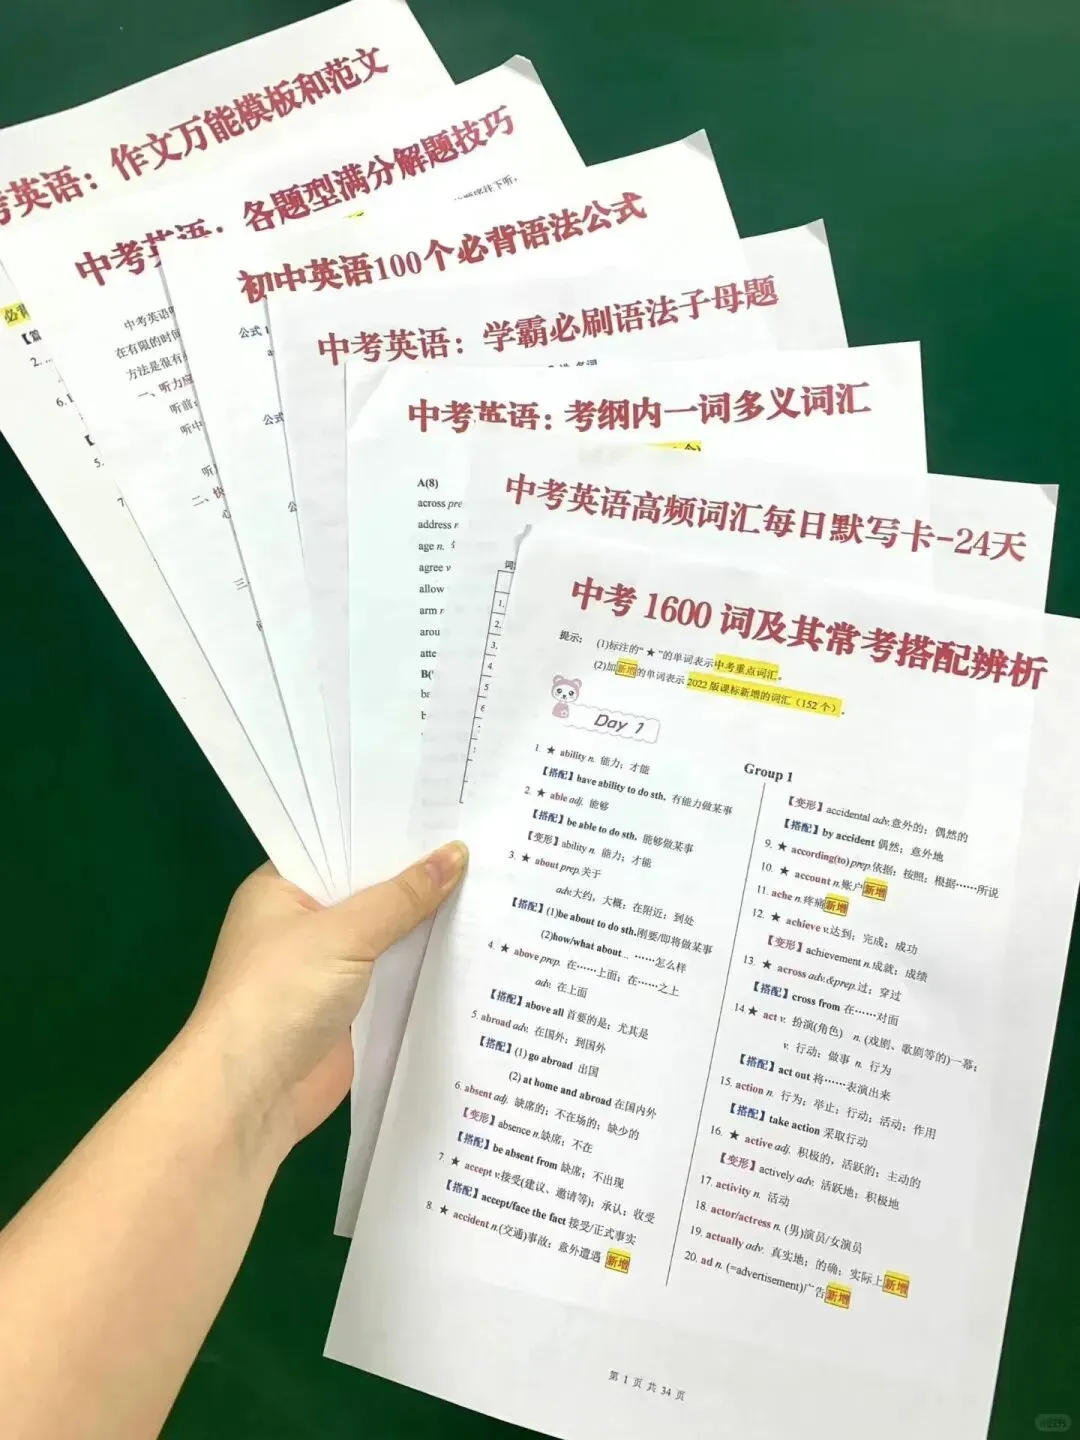 考英语：作文万能模板和范文
中考英语：各题型满分解题技巧
初中英语100个必背语法公式
中考英语：学霸必刷语法子母题
中考英语：考纲内一词多义词汇
中考英语高频词汇每日默写卡-24天
中考 1600 词及其常考搭配辨析
必背
2.
6.
5.
7
中考英语
在有限的时间
方法是很有
一、听力应
听前
听中
听
二、快
心
三
公式 1
公式
公
A(8)
across pre
address n
age n.
agree v
allow
arm n
arou
atte
B(
词
1.
2.
3.
4.
5
6
提示： (1)标注的“★”的单词表示中考重点词汇。
(2)加新增的单词表示 2022 版课标新增的词汇（152 个）。
Day 1
Group 1
1. ★ ability n. 能力；才能
【搭配】have ability to do sth. 有能力做某事
2. ★ able adj. 能够
【搭配】be able to do sth. 能够做某事
【变形】ability n. 能力；才能
3. ★ about prep.关于
adv.大约，大概；在附近；到处
【搭配】(1)be about to do sth.刚要/即将做某事
(2)how/what about... ……怎么样
4. ★ above prep. 在……上面；在……之上
adv. 在上面
【搭配】above all 首要的是；尤其是
5. abroad adv. 在国外；到国外
【搭配】(1) go abroad 出国
(2) at home and abroad 在国内外
6. absent adj. 缺席的；不在场的；缺少的
【变形】absence n.缺席；不在
【搭配】be absent from 缺席；不出现
7. ★ accept v.接受(建议、邀请等)；承认；收受
【搭配】accept/face the fact 接受/正式事实
8. ★ accident n.(交通)事故；意外遭遇 新增
【变形】accidental adv.意外的；偶然的
【搭配】by accident 偶然；意外地
9. ★ according(to) prep.依据；按照；根据……所说
10. ★ account n.账户新增
11. ache n.疼痛新增
12. ★ achieve v.达到；完成；成功
【变形】achievement n.成就；成绩
13. ★ across adv.&prep.过；穿过
【搭配】cross from 在……对面
14.★ act v. 扮演(角色) n. (戏剧、歌剧等的)一幕；
v. 行动；做事 n. 行为
【搭配】act out 将……表演出来
15. action n. 行为；举止；行动；活动；作用
【搭配】take action 采取行动
16. ★ active adj. 积极的，活跃的；主动的
【变形】actively adv. 活跃地；积极地
17. activity n. 活动
18. actor/actress n. (男)演员/女演员
19. actually adv. 真实地；的确；实际上新增
20. ad n. (=advertisement)广告新增
第 1 页 共 34 页
小红书